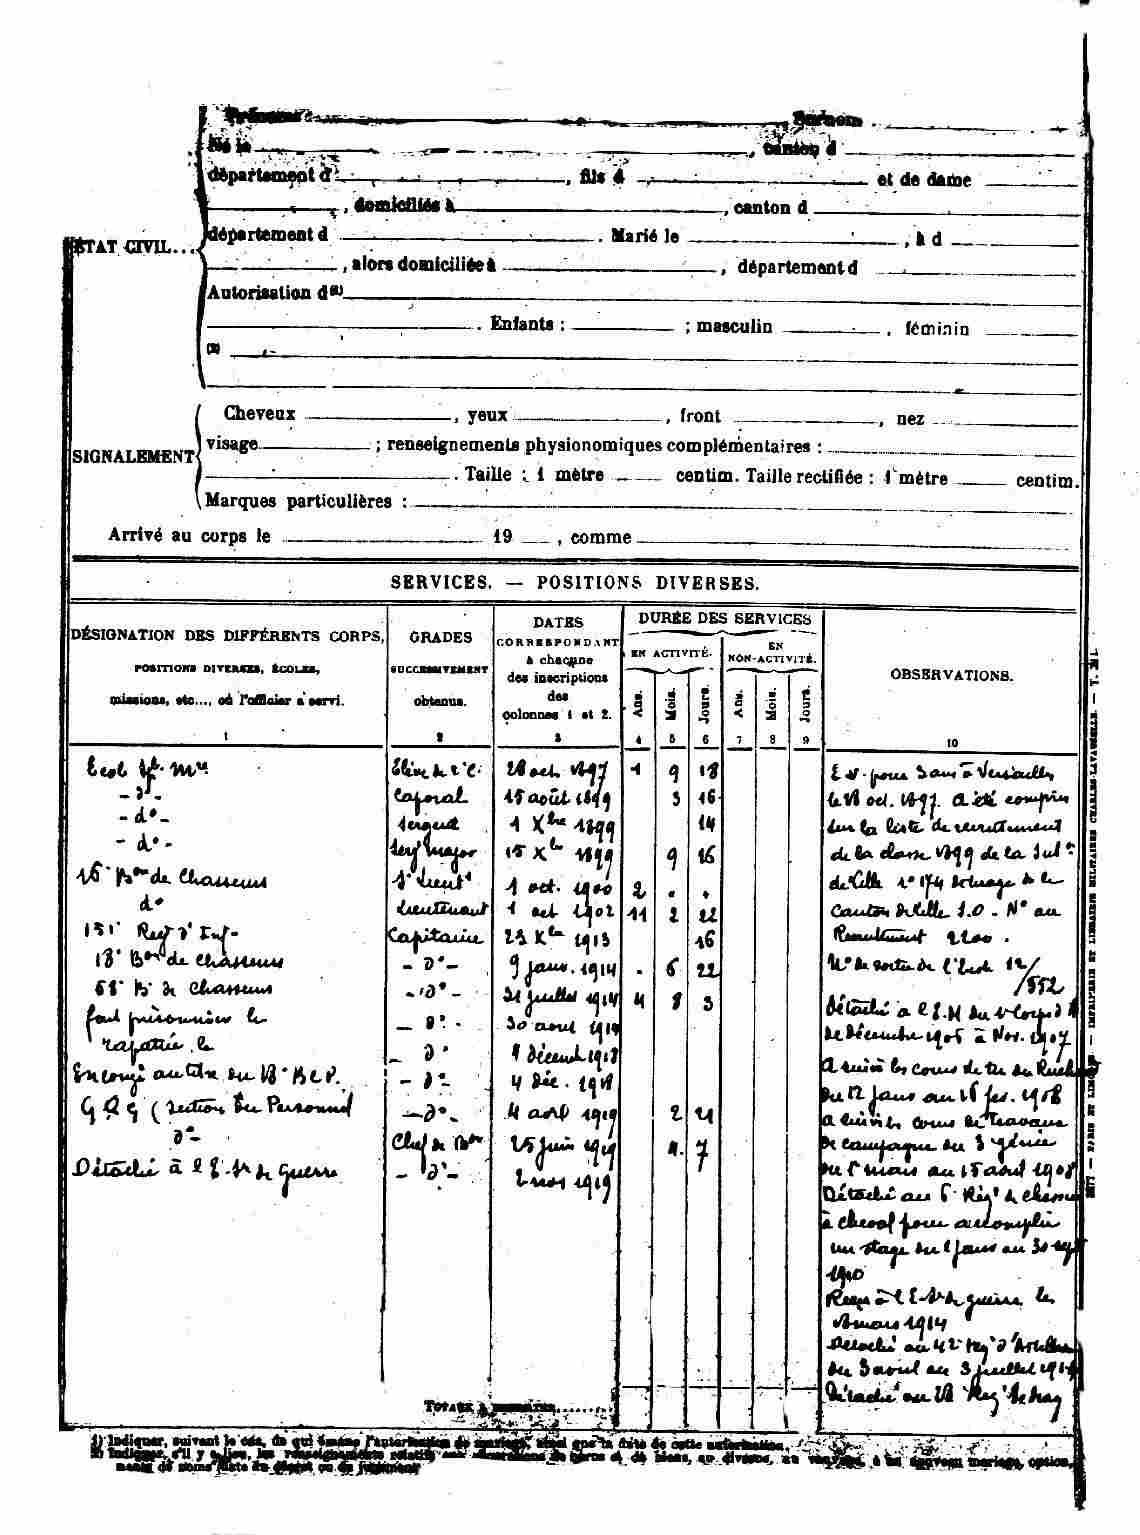 Prénoms Surnom
Né le , canton d
département d , fils d et de dame
, domiciliés à , canton d
département d . Marié le , à d
ÉTAT CIVIL...
, alors domiciliée à , département d
Autorisation d(1)
. Enfants : ; masculin , féminin
(2)
Cheveux , yeux , front , nez
visage ; renseignements physionomiques complémentaires :
SIGNALEMENT
. Taille : 1 mètre centim. Taille rectifiée : 1 mètre centim.
Marques particulières :
Arrivé au corps le 19 , comme
SERVICES. — POSITIONS DIVERSES.
DÉSIGNATION DES DIFFÉRENTS CORPS,
POSITIONS DIVERSES, ÉCOLES,
missions, etc..., où l'officier a servi.
1
GRADES
SUCCESSIVEMENT
obtenus.
2
DATES
CORRESPONDANT
à chacune
des inscriptions
des
colonnes 1 et 2.
3
DURÉE DES SERVICES
EN ACTIVITÉ.
EN
NON-ACTIVITÉ.
Ans. Mois. Jours. Ans. Mois. Jours.
4 5 6 7 8 9
OBSERVATIONS.
10
Ecol Mre 28 oct. 1897 1 9 18
- d° - Caporal 15 août 1899 3 16
- d° - Sergent 1 Xbre 1899 14
- d° - Serg major 15 Xbre 1899 9 16
16 Bon de Chasseurs S Lieut 1 oct. 1900 2 . .
d° Lieutenant 1 oct 1902 11 2 22
151 Reg d'Inf- Capitaine 23 Xbre 1913 16
18 Bon de Chasseurs - d° - 9 janv. 1914 . 6 22
58 B de Chasseurs - d° - 31 juillet 1914 4 8 3
fait prisonnier le - d° - 30 aout 1914
rapatrié le - d° - 1 décemb 1918
En congé au titre du 18 BCP. - d° - 4 déc. 1918
GQG (Section du Personnel - d° - 4 avril 1919 2 21
d° - Chef de Bon 25 juin 1919 4 7
Détaché à l'E. Sre de Guerre - d° - 2 nov 1919
E.V. pour 3 ans à Versailles
le 28 oct. 1897. A été compris
sur la liste de recrutement
de la classe 1899 de la Subon
de Lille n° 174 de le
Canton de Lille S.O - N° au
Recrutement 2200.
N° de sortie de l'Ecole 12/552
Détaché à l'E.M du 1 Corps d'A
de décembre 1906 à Nov. 1907
A suivi les cours de tir du Ruchard
du 12 janv au 16 fev. 1908
a suivi les cours de travaux
de campagne du 3 génie
du mars au 15 aout 1908
Détaché au 6 Régt de chasseurs
à cheval pour accomplir
un stage du 1 janv au 30
1910
Reçu à l'E. Sre de guerre le
mars 1914
Détaché au 42 reg d'Artillerie
du 3 avril au 3 juillet 1914
Détaché au 18 Reg de
TOTAUX À
1) Indiquer, suivant le cas, de qui émane l'autorisation de mariage, ainsi que la date de cette autorisation.
2) Indiquer, s'il y a lieu, les renseignements relatifs aux séparations de corps et de biens, au divorce, au veuvage, à un nouveau mariage, option,
date du décret ou du jugement
PARIS ET LIMOGES. — IMPRIMERIE ET LIBRAIRIE MILITAIRES CHARLES-LAVAUZELLE. —